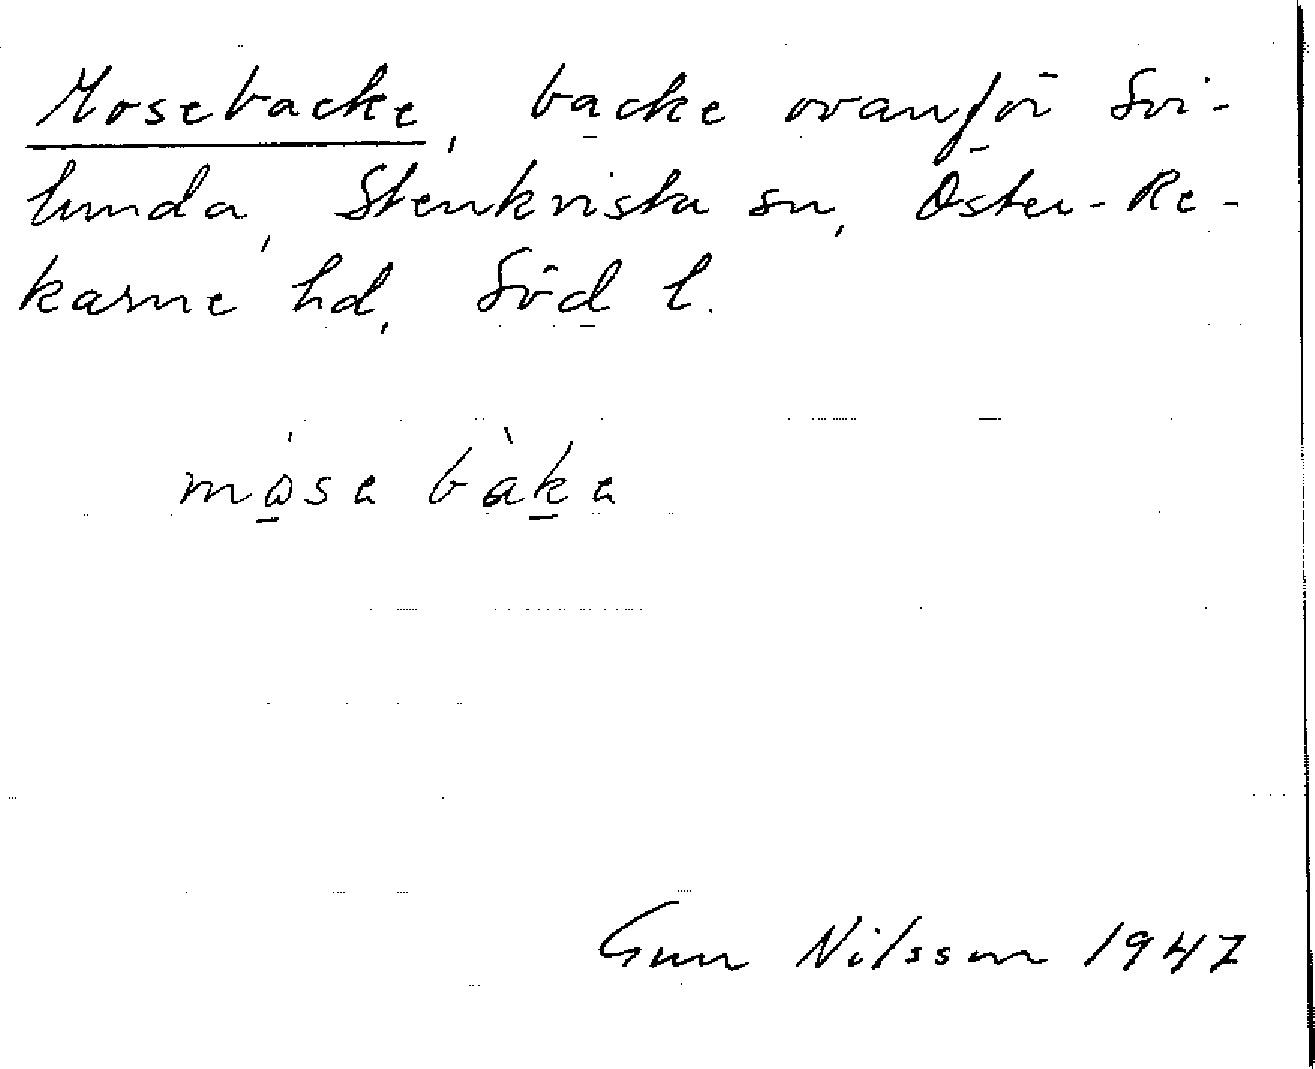 Mosebacke, backe ovanför Svi-
lunda, Stenkvista sn, Öster-Re-
karne hd, Söd l.
mosa baka
Gun Nilsson 1947